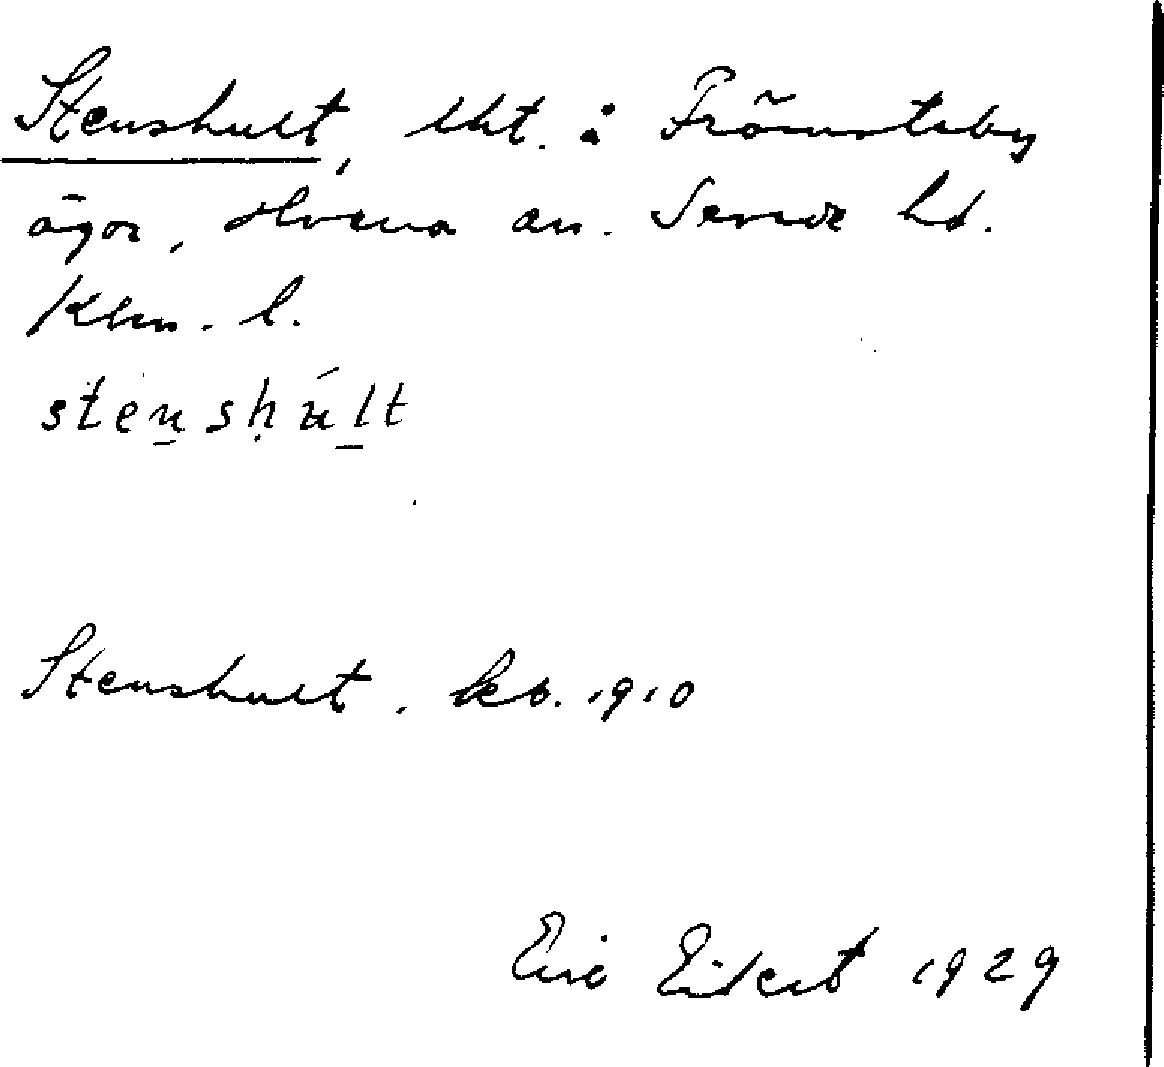 Stenshult, lht. å Frömsteby
ägor, Hvena sn. Sevede hd.
Klm. l.
sten̲sḥúl̲t
Stenshult. kb. 1910
Eric 1929